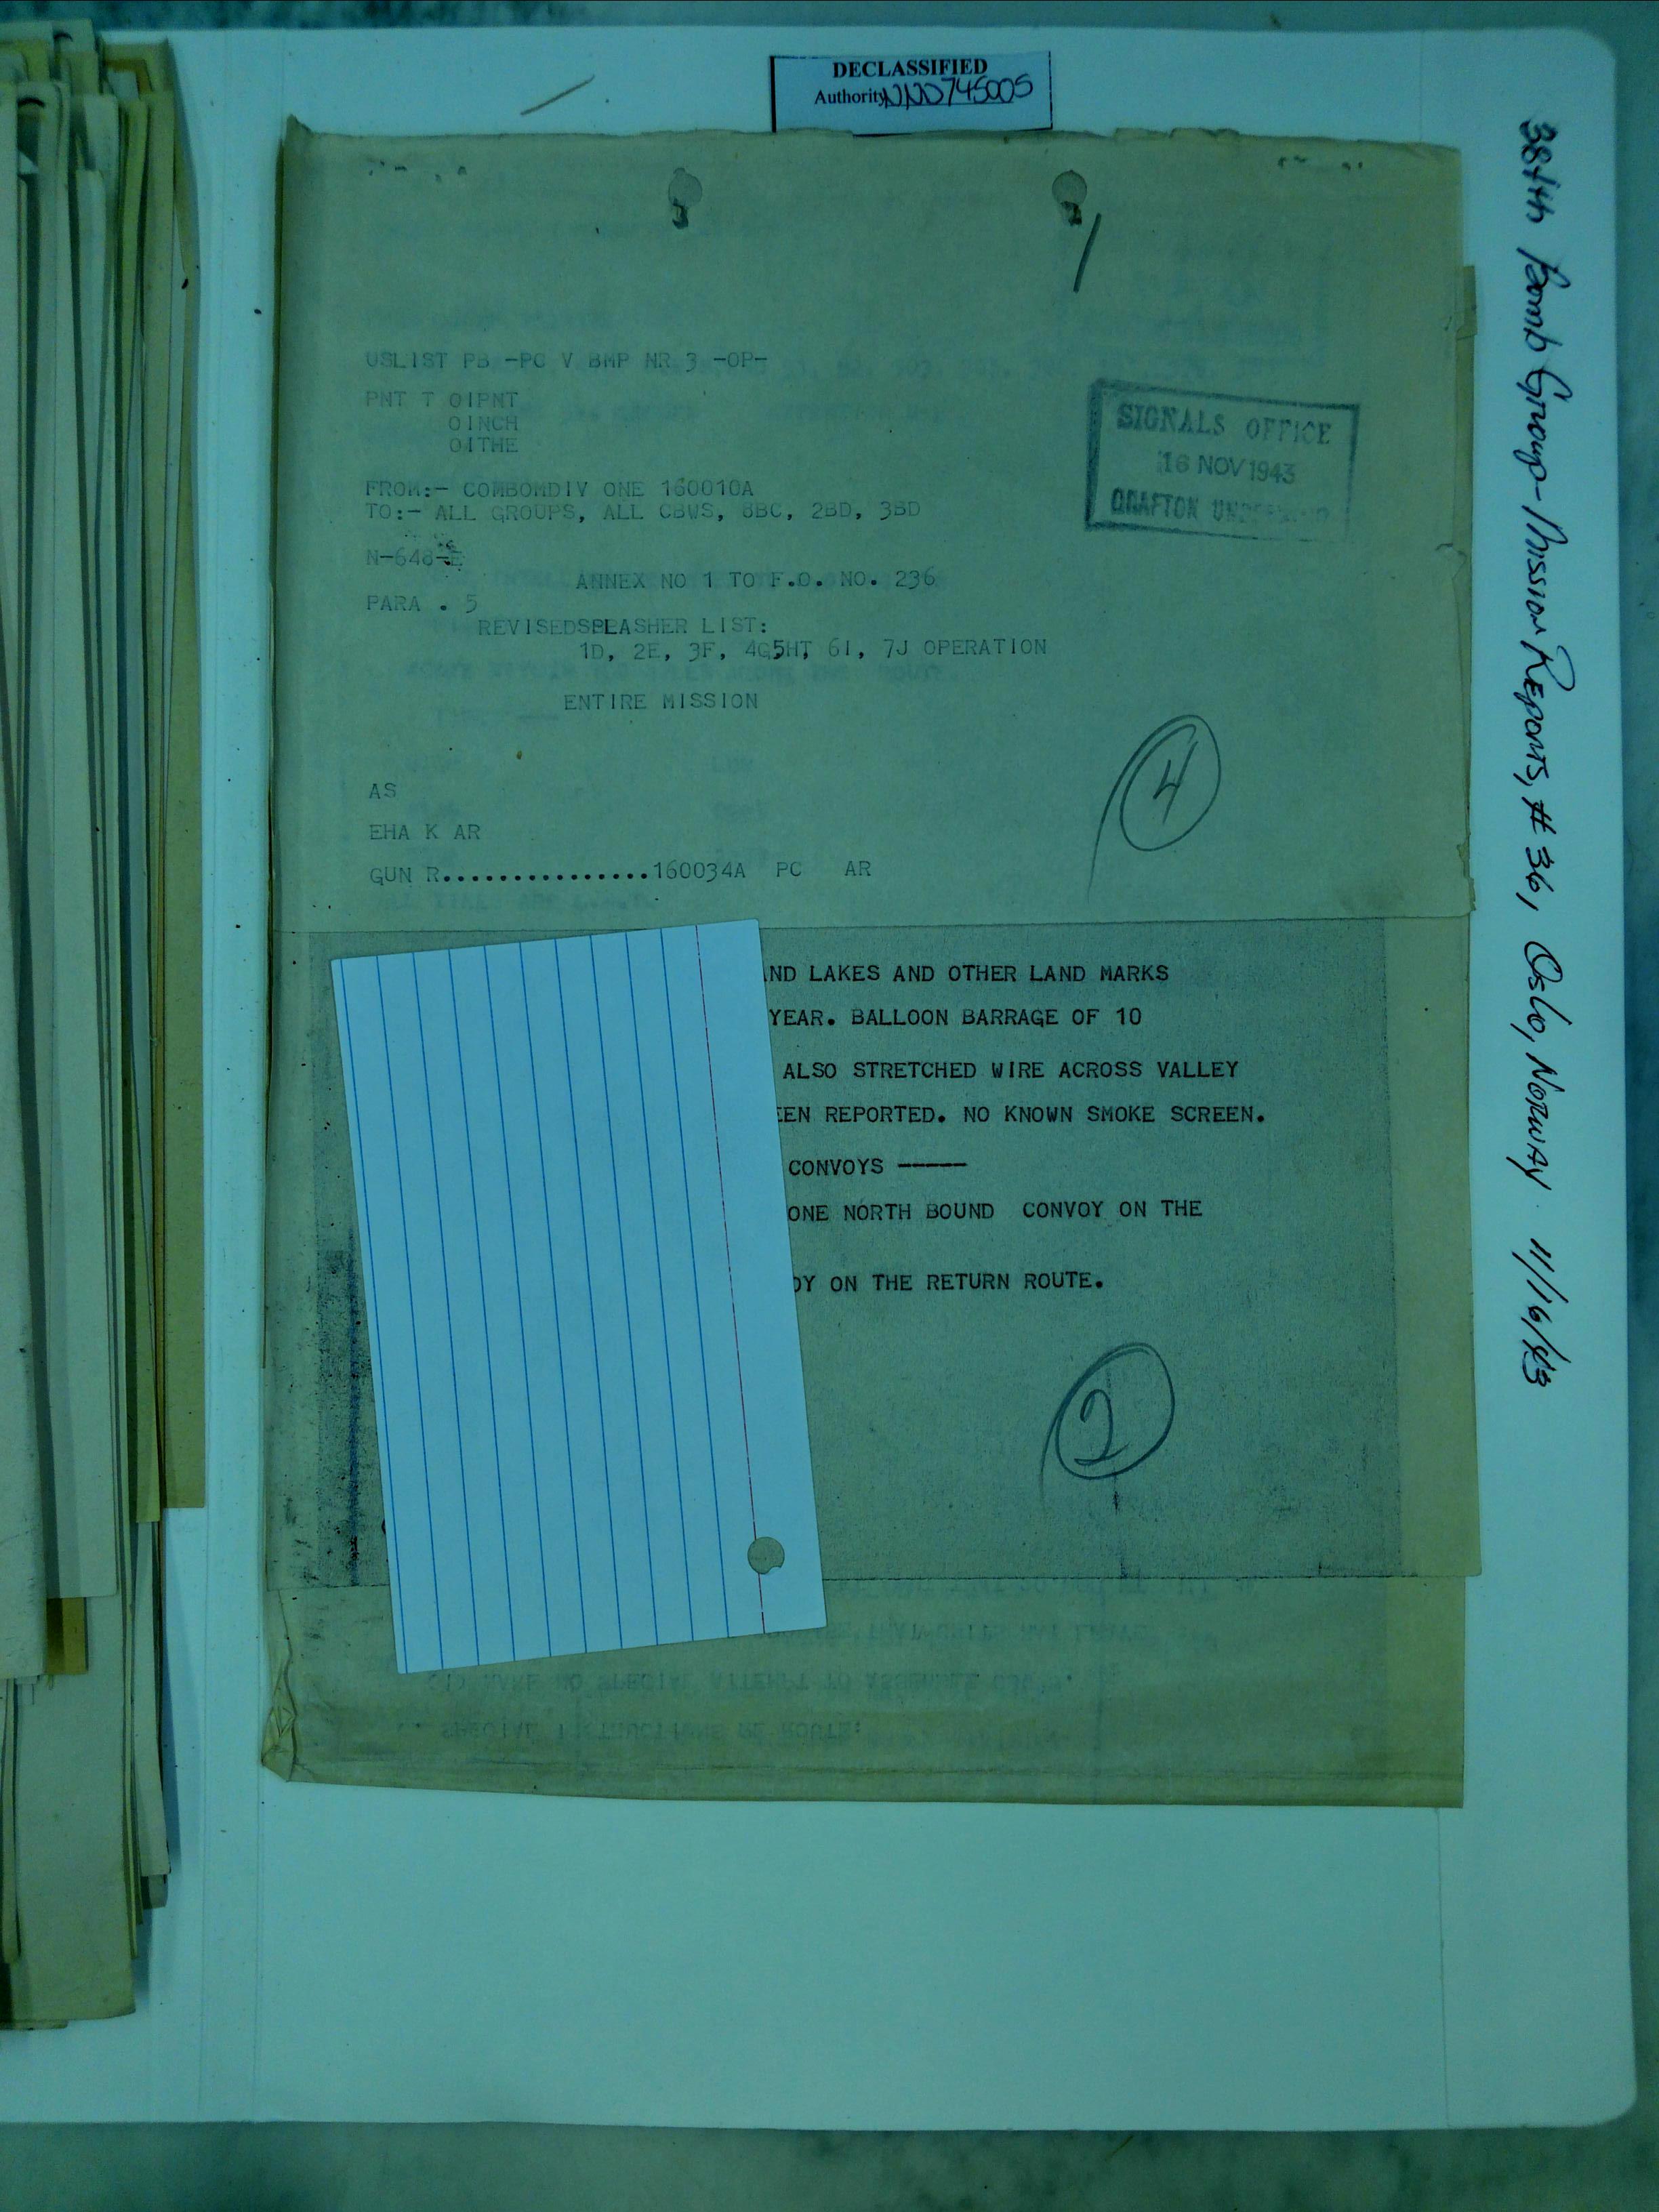 DECLASSIFIED
Authority NND745005
USLIST PB -PC V BMP NR 3 -OP-
PNT T OIPNT
OINCH
OITHE
SIGNALS OFFICE
16 NOV 1943
GRAFTON
FROM:- COMBOMDIV ONE 160010A
TO:- ALL GROUPS, ALL CBWS, 8BC, 2BD, 3BD
N-648-E
ANNEX NO 1 TO F.O. NO. 236
PARA . 5
REVISED SPLASHER LIST:
1D, 2E, 3F, 4G5HT 6I, 7J OPERATION
ENTIRE MISSION
4
AS
EHA K AR
GUN R...............160034A PC AR
AND LAKES AND OTHER LAND MARKS
YEAR. BALLOON BARRAGE OF 10
ALSO STRETCHED WIRE ACROSS VALLEY
EEN REPORTED. NO KNOWN SMOKE SCREEN.
CONVOYS -----
ONE NORTH BOUND CONVOY ON THE
OY ON THE RETURN ROUTE.
2
(1) MAKE NO SPECIAL ATTEMPT TO ASSEMBLE
SPECIAL INSTRUCTIONS RE ROUTE:
384th Bomb Group - Mission Reports, # 36, Oslo, Norway 11/16/43